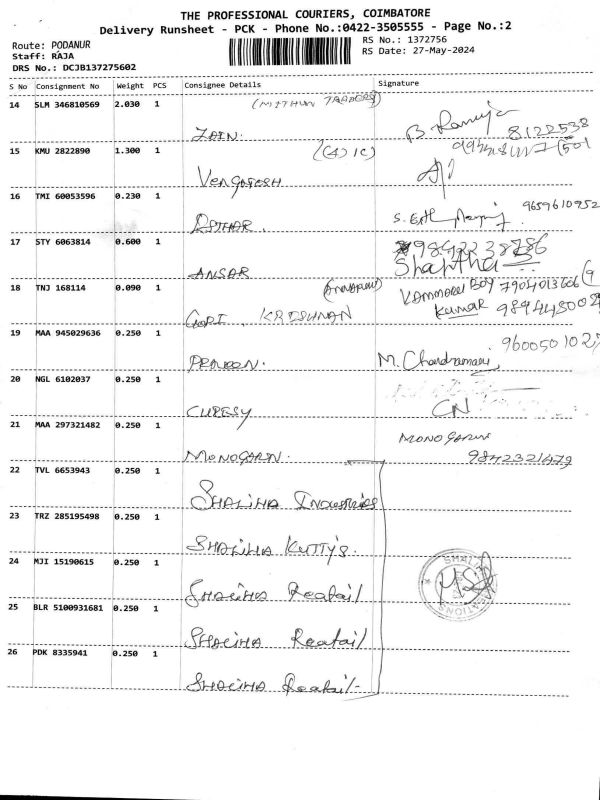 THE PROFESSIONAL COURIERS, COIMBATORE
Delivery Runsheet - PCK - Phone No.:0422-3505555 - Page No.:2
Route: PODANUR
RS No.: 1372756
Staff: RAJA
RS Date: 27-May-2024
DRS No.: DCJB137275602
S No Consignment No Weight PCS Consignee Details Signature
14 SLM 346810569 2.030 1
(MITHUN TRADERS)
ZAIN.
8122538
15 KMU 2822890 1.300 1
VENGATESH
16 TMI 60053596 0.230 1
9659610952
17 STY 6063814 0.600 1
ANSAR
Shantha
18 TNJ 168114 0.090 1
GOPI. KRISHNAN
kumar
19 MAA 945029636 0.250 1
PRAVEEN.
M. Chandramani
20 NGL 6102037 0.250 1
CN
21 MAA 297321482 0.250 1
MONOGARN.
9842321479
22 TVL 6653943 0.250 1
SHALIHA Industries
23 TRZ 285195498 0.250 1
SHALIHA KUTTY'S.
24 MJI 15190615 0.250 1
SHALIHA Reatail
25 BLR 5100931681 0.250 1
SHALIHA Reatail
26 PDK 8335941 0.250 1
SHALIHA Reatail